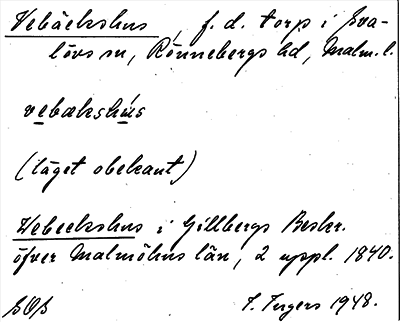 Vebäckshus, f. d. torp i Sva-
lövs sn, Rönnebergs hd, Malm. l.
vebækshús
(läget obekant)
Webeckshus i Gillbergs Beskr.
öfver Malmöhus län, 2 uppl. 1840.
1948.